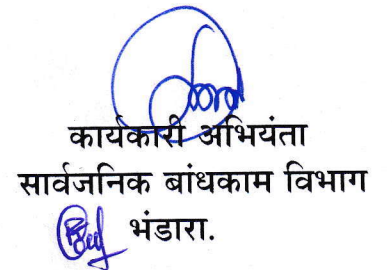 कार्यकारी अभियंता
सार्वजनिक बांधकाम विभाग
भंडारा.